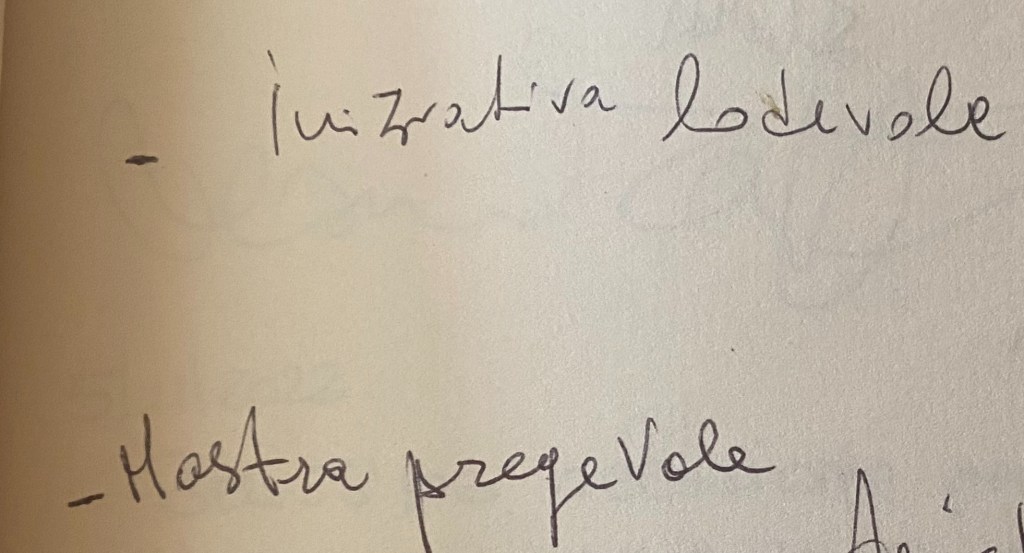 - Iniziativa lodevole
- Mostra pregevole